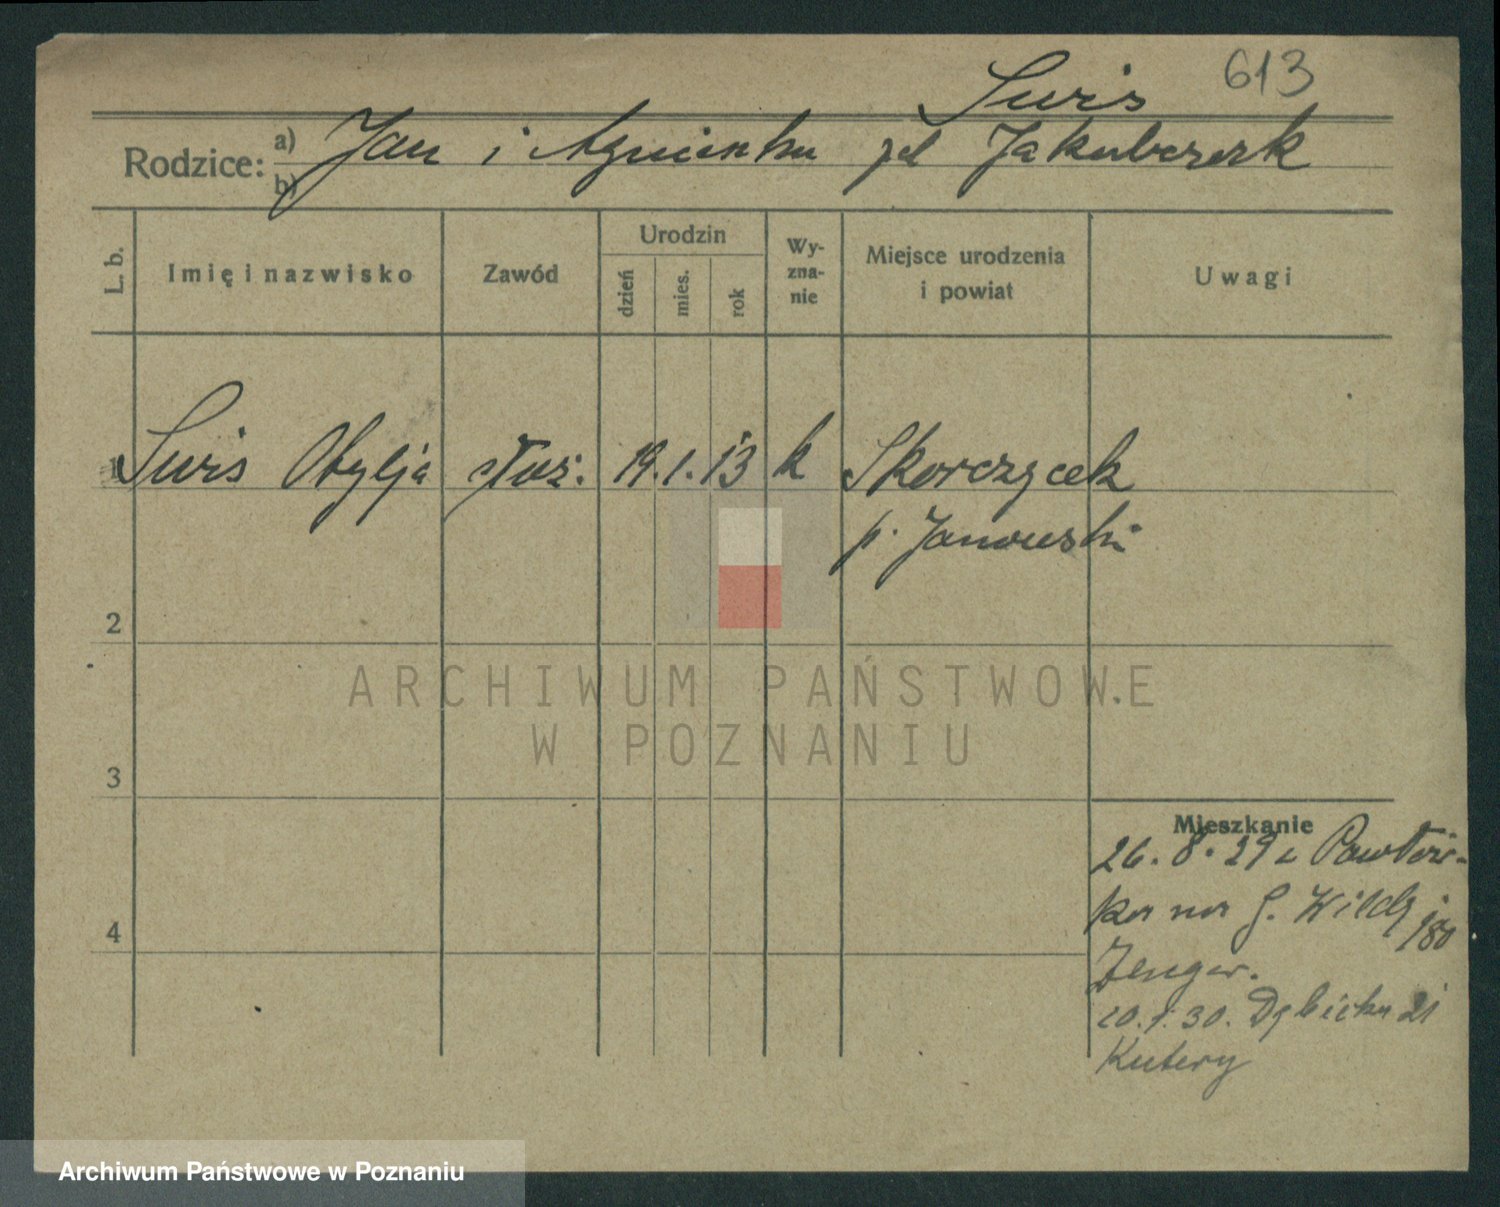 613
Suris
Rodzice: a) Jan i Agnieszka
b)
L. b.
Imię i nazwisko
Zawód
Urodzin
dzień
mies.
rok
Wy-
zna-
nie
Miejsce urodzenia
i powiat
Uwagi
1 Otylja służ. 19. 1. 13 k
p. Janowski
2
3
4
Mieszkanie
26. 8. 29 z
G. Wildy 180
10. 1. 30. 21
Kutery
ARCHIWUM PAŃSTWOWE
W POZNANIU
Archiwum Państwowe w Poznaniu